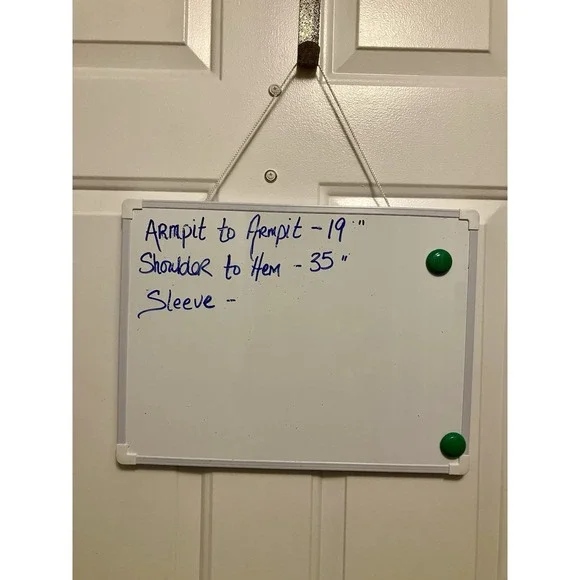 Armpit to Armpit - 19"
Shoulder to Hem - 35"
Sleeve -